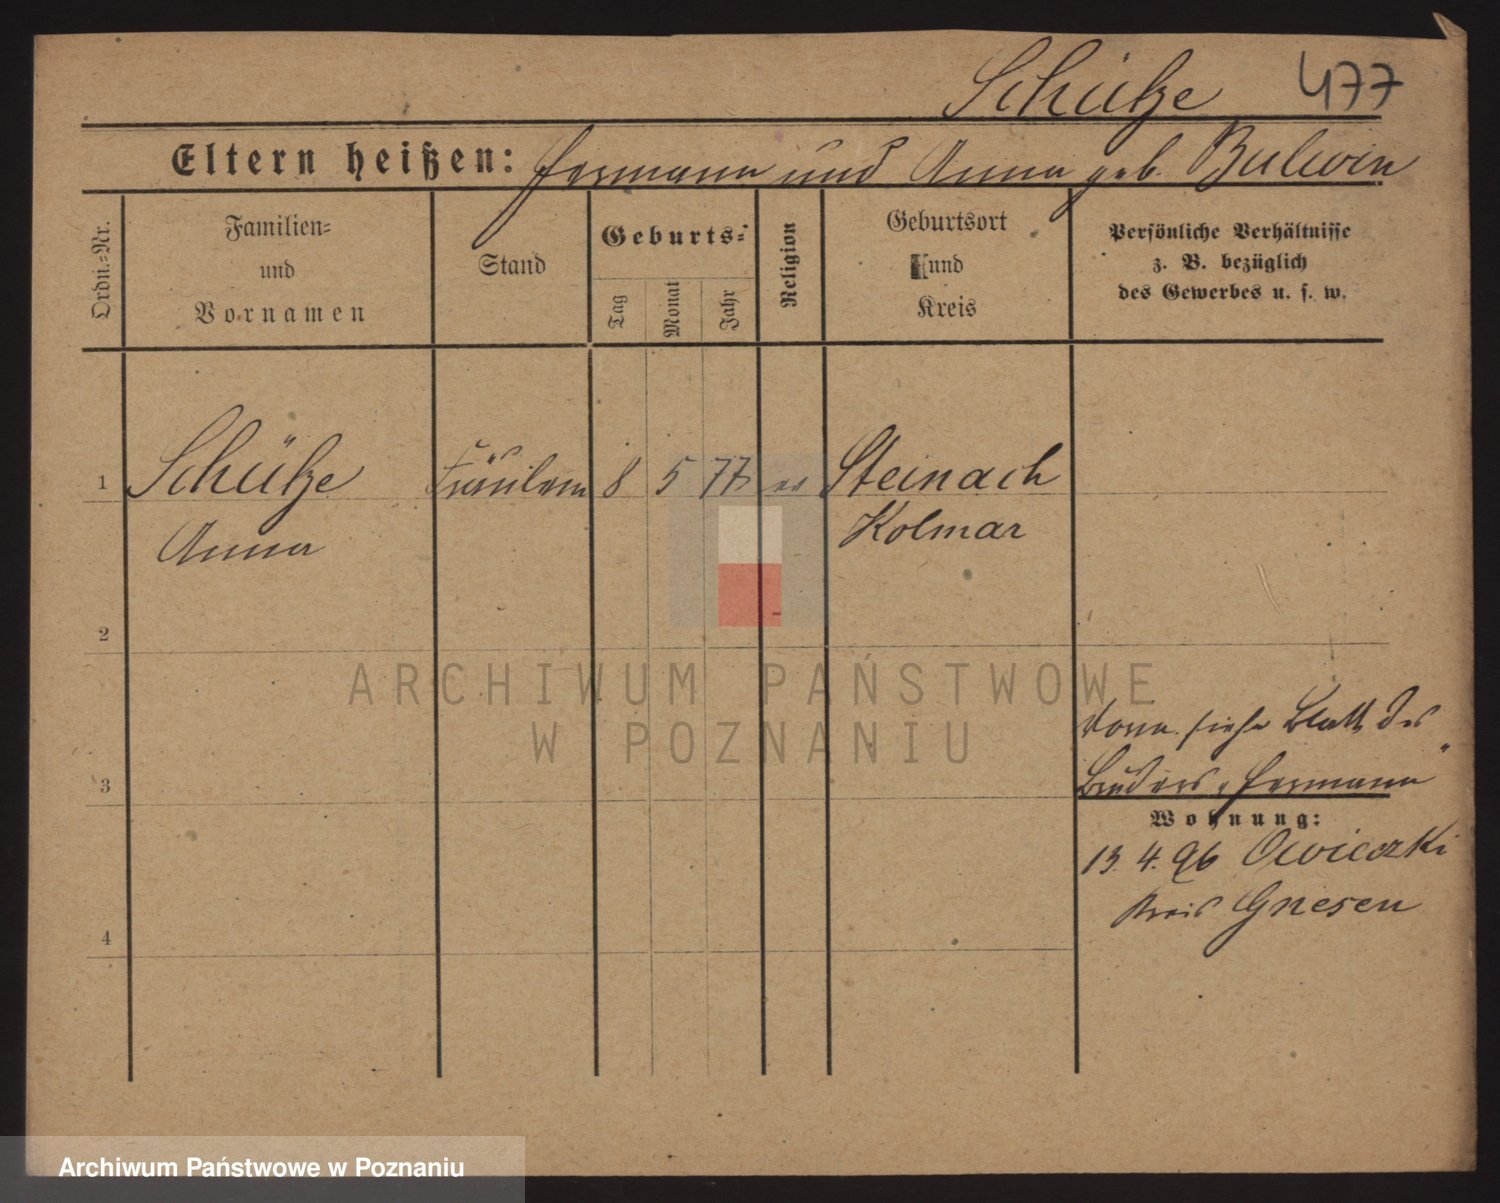 Schütze 477
Eltern heißen: Hermann und Anna geb. Bulwin
Ordn.=Nr.
Familien=
und
Vornamen
Stand
Geburts=
Tag
Monat
Jahr
Religion
Geburtsort
und
Kreis
Persönliche Verhältnisse
z. B. bezüglich
des Gewerbes u. s. w.
1 Schütze Fräulein 8 5 77 ev Steinach
Anna Kolmar
2
3
4
vorn. siehe Blatt des
Bruders „Hermann"
Wohnung:
13. 4. 96 Owieczki
Kreis Gnesen
ARCHIWUM PAŃSTWOWE
W POZNANIU
Archiwum Państwowe w Poznaniu